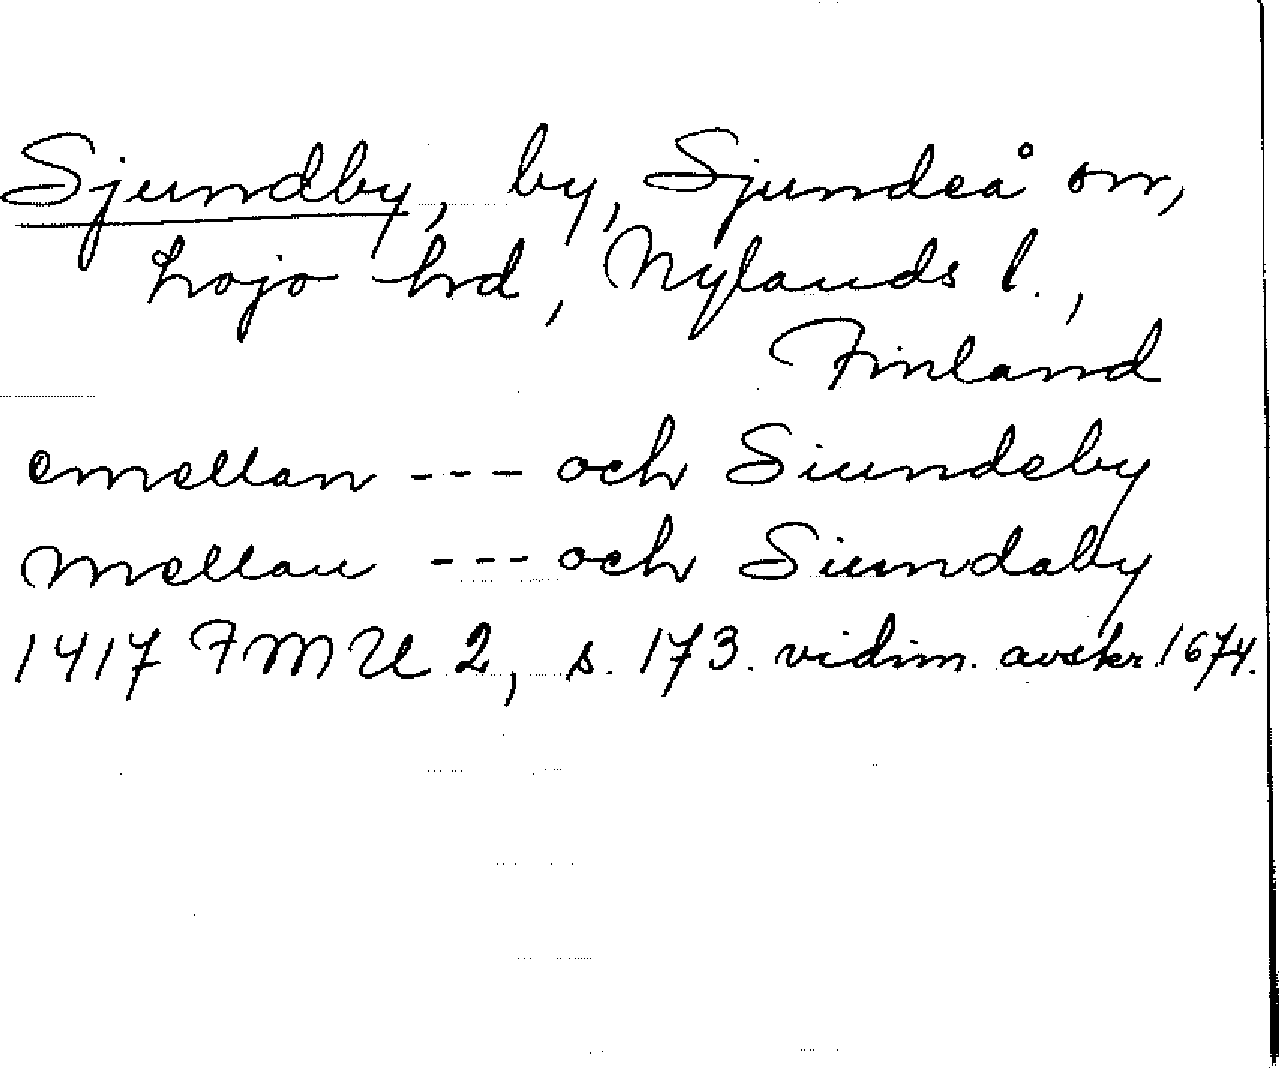 Sjundby, by, Sjundeå sn,
Lojo hrd, Nylands l.,
Finland
emellan --- och Siundeby
mellan --- och Siundaby
1417 FMU 2, s. 173. vidim. avskr. 1674.